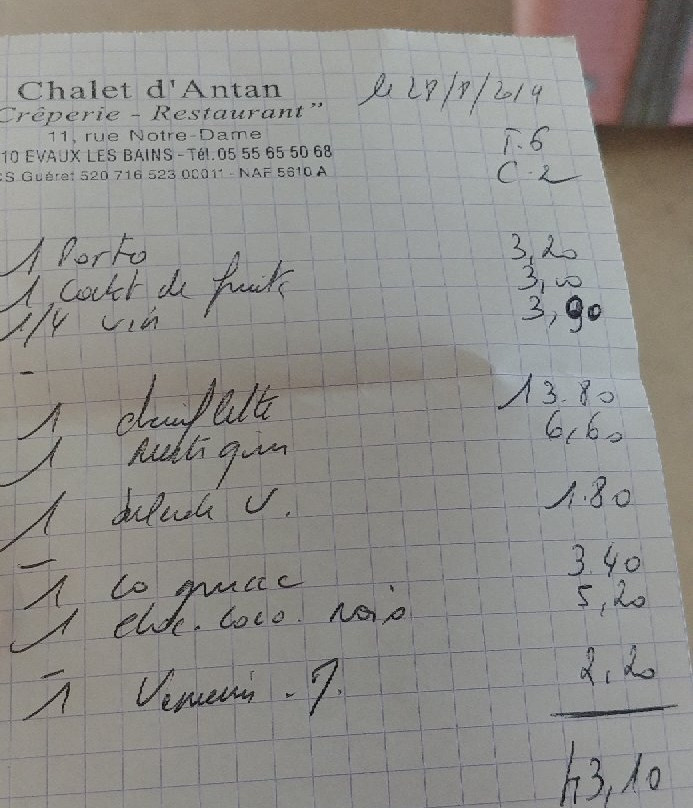 Chalet d'Antan
Crêperie - Restaurant"
11, rue Notre-Dame
10 EVAUX LES BAINS - Tél. 05 55 65 50 68
CS Guéret 520 716 523 00011 - NAF 5610 A
le
T.6
C.2
1 Porto 3,20
1 de fruits 3,00
1/4 vin 3,90
-
1 13.80
1 6,60
1 salade V. 1.80
-
1 3.40
1 choc. coco. 5,20
-
1 2,20
43,10